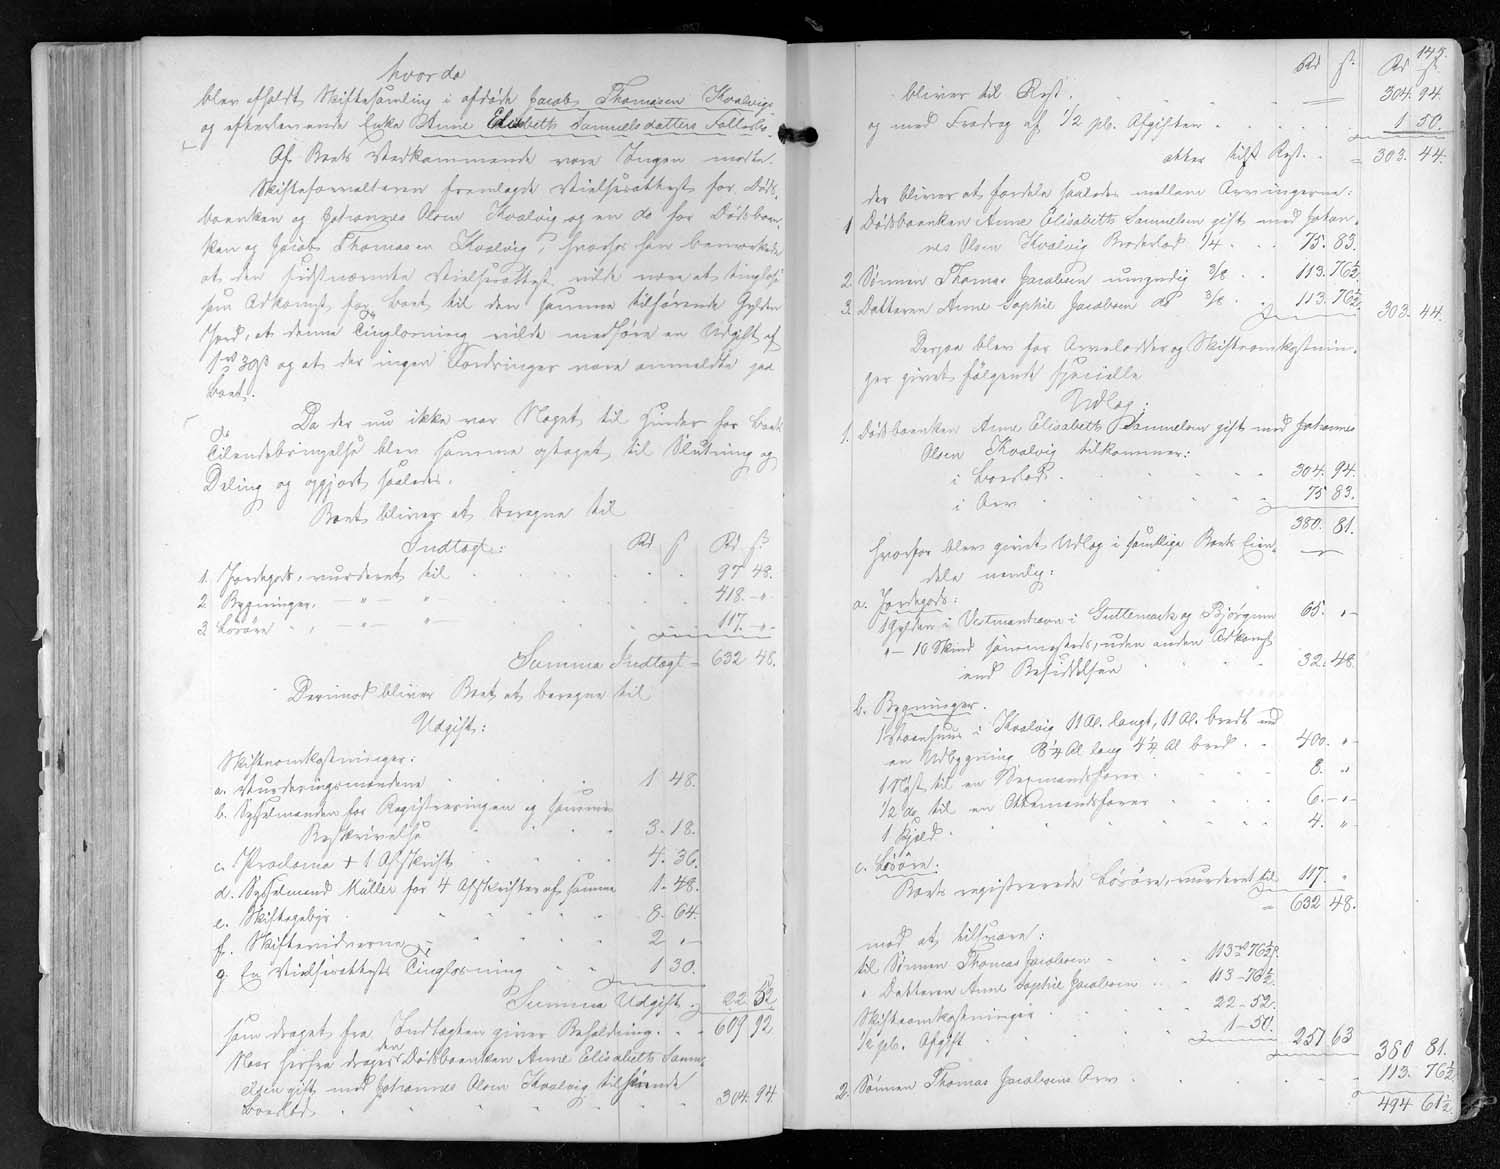 hvorda
blev afholdt Skiftesamling i afdøde Jacob Thomasen Kvalvigs
og efterlevende Enke Anne Elisabeth Samuelsdatters Fællesbo.
Af Boets Vedkommende vare Ingen mødte.
Skifteforvalteren fremlagde Vielsesattest for Døds-
boenken og Johannes Olsen Kvalvig og en do for Dødsboen-
ken og Jacob Thomasen Kvalvig, hvorfor han bemærkede
at den sidstnævnte Vielsesattest vilde være at tinglæse
som Adkomst for Boet til den samme tilhørende Gylden
Jord, at denne Tinglæsning vilde medføre en Udgift af
1 rd 30 ß og at der ingen Fordringer vare anmeldte paa
Boet.
Da der nu ikke var Noget til Hinder for Boets
Tilendebringelse blev samme optaget til Slutning og
Deling og opgjort saaledes.
Boet bliver at beregne til
Indtægt: Rd ß Rd ß
1. Jordegods, vurderet til 97 48.
2 Bygninger, — " — " — 418. — "
3 Løsøre " , — " — " — 117. — "
Summa Indtægt — 632 48.
Derimod bliver Boet at beregne til
Udgift:
Skifteomkostninger:
a. Vurderingsmændene 1 48.
b. Sysselmanden for Registreringen og sammes
Beskrivelse 3. 18.
c. Proclama + 1 Afskrift 4. 36.
d. Sysselmand Müller for 4 Afskrifter af samme 1. 48.
e. Skiftegebyr 8. 64.
f. Skiftevidnerne 2 "
g. En Vielsesattests Tinglæsning 1 30.
Summa Udgift 22. 52
som draget fra Indtægten giver Beholdning 609 92
Naar herfra drages den Dødsboenken Anne Elisabeth Samu-
elsen gift med Johannes Olsen Kvalvig tilhørende
Boeslod 304. 94.
145.
Rd ß. Rd ß.
bliver til Rest 304. 94.
og med Fradrag af 1/2 pCt. Afgiften 1 50.
atter til Rest 303. 44.
der bliver at fordele saaledes mellem Arvingerne:
1 Dødsboenken Anne Elisabeth Samuelsen gift med Johan-
nes Olsen Kvalvig Broderlod 1/4 75. 83.
2. Sønnen Thomas Jacobsen umyndig 3/8 113. 76½
3. Datteren Anne Sophie Jacobsen do 3/8 113. 76½ 303. 44.
Derpaa blev for Arvelodder og Skifteomkostnin-
ger givet følgende specielle
Udlæg:
1. Dødsboenken Anne Elisabeth Samuelsen gift med Johannes
Olsen Kvalvig tilkommer:
i Boeslod 304. 94.
i Arv 75 83.
380. 81.
hvorfor blev givet Udlæg i samtlige Boets Eien-
dele nemlig:
a. Jordegods:
1 Gylden i Vestmanhavn i Guttemark og Bjørgum 65. "
" — 10 Skind sammesteds, uden anden Adkomst
end Besiddelsen 32. 48.
b. Bygninger.
1 Stuehuus i Kvalvig 11 Al. langt, 11 Al. bredt med
en Udbygning 8¼ Al lang 4¼ Al bred 400. "
1 Nøst til en Sexmandsfarer 8. "
1/2 do til en Ottemandsfarer 6. — "
1 Hjeld 4. "
c. Løsøre.
Boets registrerede Løsøre, vurderet til 117. "
632 48.
mod at tilsvare:
til Sønnen Thomas Jacobsen 113 rd 76½ ß.
" Datteren Anne Sophie Jacobsen 113 — 76½.
Skifteomkostninger 22 — 52.
1/2 pCt. Afgift 1 — 50. 251 63
380 81.
2. Sønnen Thomas Jacobsens Arv 113. 76½
494 61½